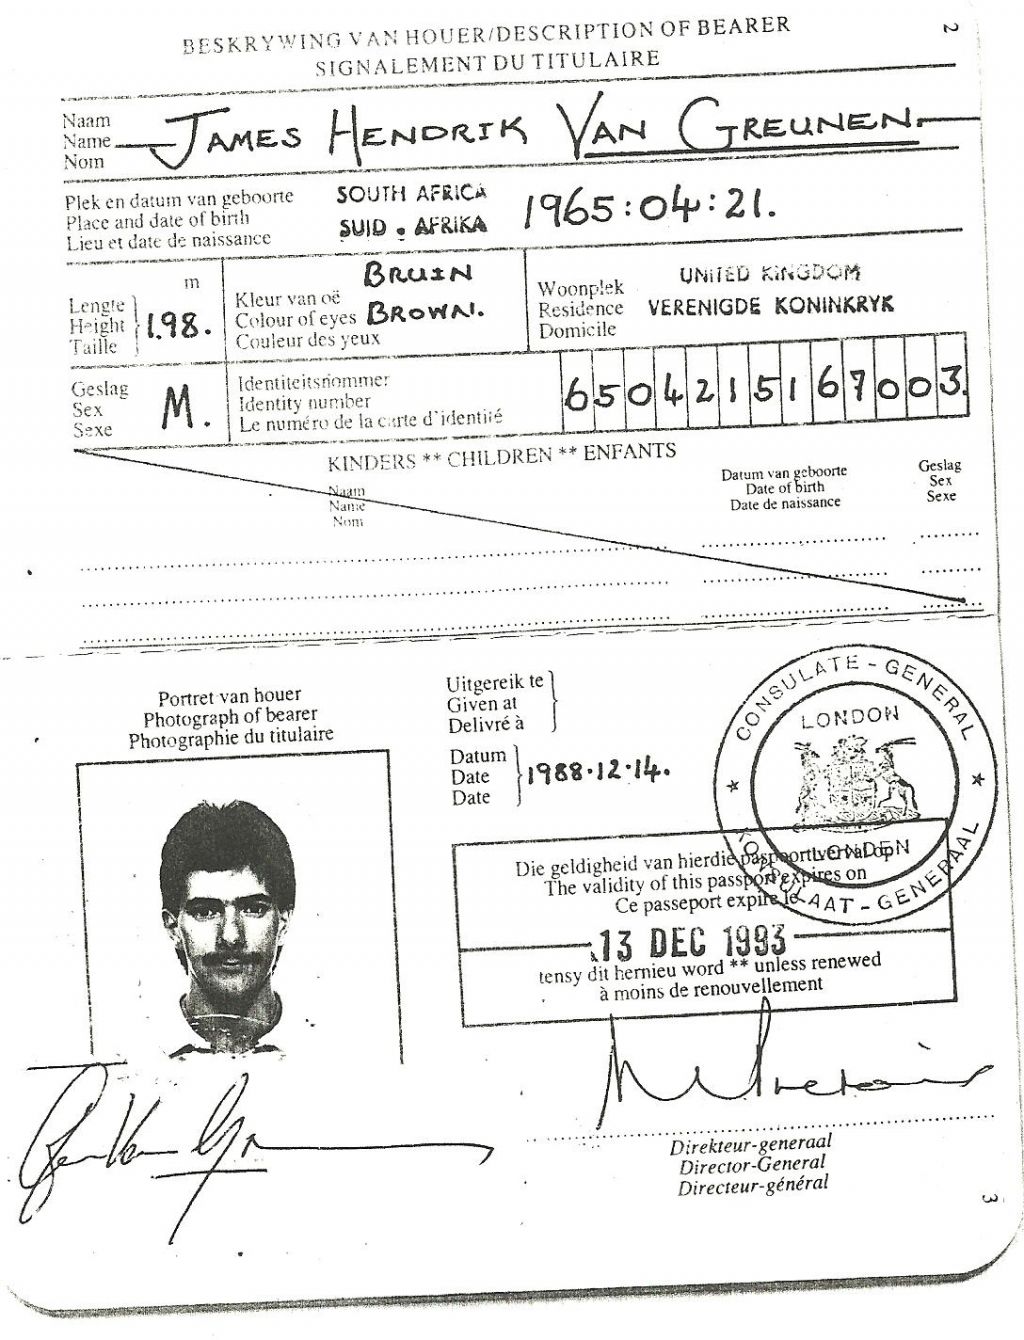 2
BESKRYWING VAN HOUER/DESCRIPTION OF BEARER
SIGNALEMENT DU TITULAIRE
Naam
Name
Nom
JAMES HENDRIK VAN GREUNEN
Plek en datum van geboorte
Place and date of birth
Lieu et date de naissance
SOUTH AFRICA
SUID . AFRIKA
1965:04:21.
Lengte
Height
Taille
m
1.98.
Kleur van oë
Colour of eyes
Couleur des yeux
BRUIN
BROWN.
Woonplek
Residence
Domicile
UNITED KINGDOM
VERENIGDE KONINKRYK
Geslag
Sex
Sexe
M.
Identiteitsnommer
Identity number
Le numéro de la carte d'identité
6504215167003.
KINDERS ** CHILDREN ** ENFANTS
Naam
Name
Nom
Datum van geboorte
Date of birth
Date de naissance
Geslag
Sex
Sexe
Portret van houer
Photograph of bearer
Photographie du titulaire
Uitgereik te
Given at
Delivré à
Datum
Date
Date
1988.12.14.
CONSULATE-GENERAL
LONDON
LONDEN
KONSULAAT-GENERAAL
Die geldigheid van hierdie paspoort verval op
The validity of this passport expires on
Ce passeport expire le
13 DEC 1993
tensy dit hernieu word ** unless renewed
à moins de renouvellement
Direkteur-generaal
Director-General
Directeur-général
3